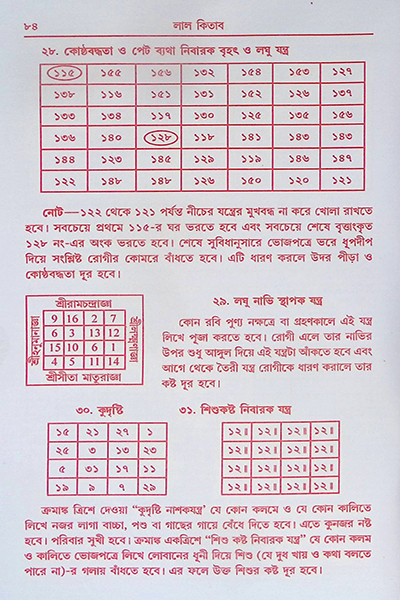 ৮৪ লাল কিতাব
২৮. কোষ্ঠবদ্ধতা ও পেট ব্যথা নিবারক বৃহৎ ও লঘু যন্ত্র
১১৫ ১৫৫ ১৫৬ ১৩২ ১৫৪ ১৫৩ ১২৭
১৩৮ ১১৬ ১৫১ ১৩১ ১৫২ ১২৬ ১৩৭
১৩৩ ১৩৪ ১১৭ ১৩০ ১২৫ ১৩৫ ১৫৬
১৩৬ ১৪০ ১২৮ ১১৮ ১৪১ ১৪৩ ১৪৩
১৪৪ ১২৩ ১৪৫ ১২৯ ১১৯ ১৪৬ ১৪৭
১২২ ১৪৮ ১৪৮ ১২৬ ১৫০ ১২০ ১২১
নোট—১২২ থেকে ১২১ পর্যন্ত নীচের যন্ত্রের মুখবন্ধ না করে খোলা রাখতে
হবে। সবচেয়ে প্রথমে ১১৫-র ঘর ভরতে হবে এবং সবচেয়ে শেষে বৃত্তাংকৃত
১২৮ নং-এর অংক ভরতে হবে। শেষে সুবিধানুসারে ভোজপত্রে ভরে ধূপদীপ
দিয়ে সংশ্লিষ্ট রোগীর কোমরে বাঁধতে হবে। এটি ধারণ করালে উদর পীড়া ও
কোষ্ঠবদ্ধতা দূর হবে।
শ্রীরামচন্দ্রাজ্ঞা
শ্রীহনুমানাজ্ঞা
9 16 2 7
6 3 13 12
15 10 6 1
4 5 11 14
শ্রীসীতা মাতুরাজ্ঞা
২৯. লঘু নাভি স্থাপক যন্ত্র
কোন রবি পুণ্য নক্ষত্রে বা গ্রহণকালে এই যন্ত্র
লিখে পূজা করতে হবে। রোগী এলে তার নাভির
উপর শুধু আঙ্গুল দিয়ে এই যন্ত্রটা আঁকতে হবে এবং
আগে থেকে তৈরী যন্ত্র রোগীকে ধারণ করালে তার
কষ্ট দূর হবে।
৩০. কুদৃষ্টি
১৫ ২১ ২৭ ১
২৫ ৩ ১৩ ২৩
৫ ৩১ ১৭ ১১
১৯ ৯ ৭ ২৯
৩১. শিশুকষ্ট নিবারক যন্ত্র
১২॥ ১২॥ ১২॥ ১২॥
১২॥ ১২॥ ১২॥ ১২॥
১২॥ ১২॥ ১২॥ ১২॥
১২॥ ১২॥ ১২॥ ১২॥
ক্রমাঙ্ক ত্রিশে দেওয়া “কুদৃষ্টি নাশকযন্ত্র’ যে কোন কলমে ও যে কোন কালিতে
লিখে নজর লাগা বাচ্চা, পশু বা গাছের গায়ে বেঁধে দিতে হবে। এতে কুনজর নষ্ট
হবে। পরিবার সুখী হবে। ক্রমাঙ্ক একত্রিশে “শিশু কষ্ট নিবারক যন্ত্র” যে কোন কলম
ও কালিতে ভোজপত্রে লিখে লোবানের ধুনী দিয়ে শিশু (যে দুধ খায় ও কথা বলতে
পারে না)-র গলায় বাঁধতে হবে। এর ফলে উক্ত শিশুর কষ্ট দূর হবে।